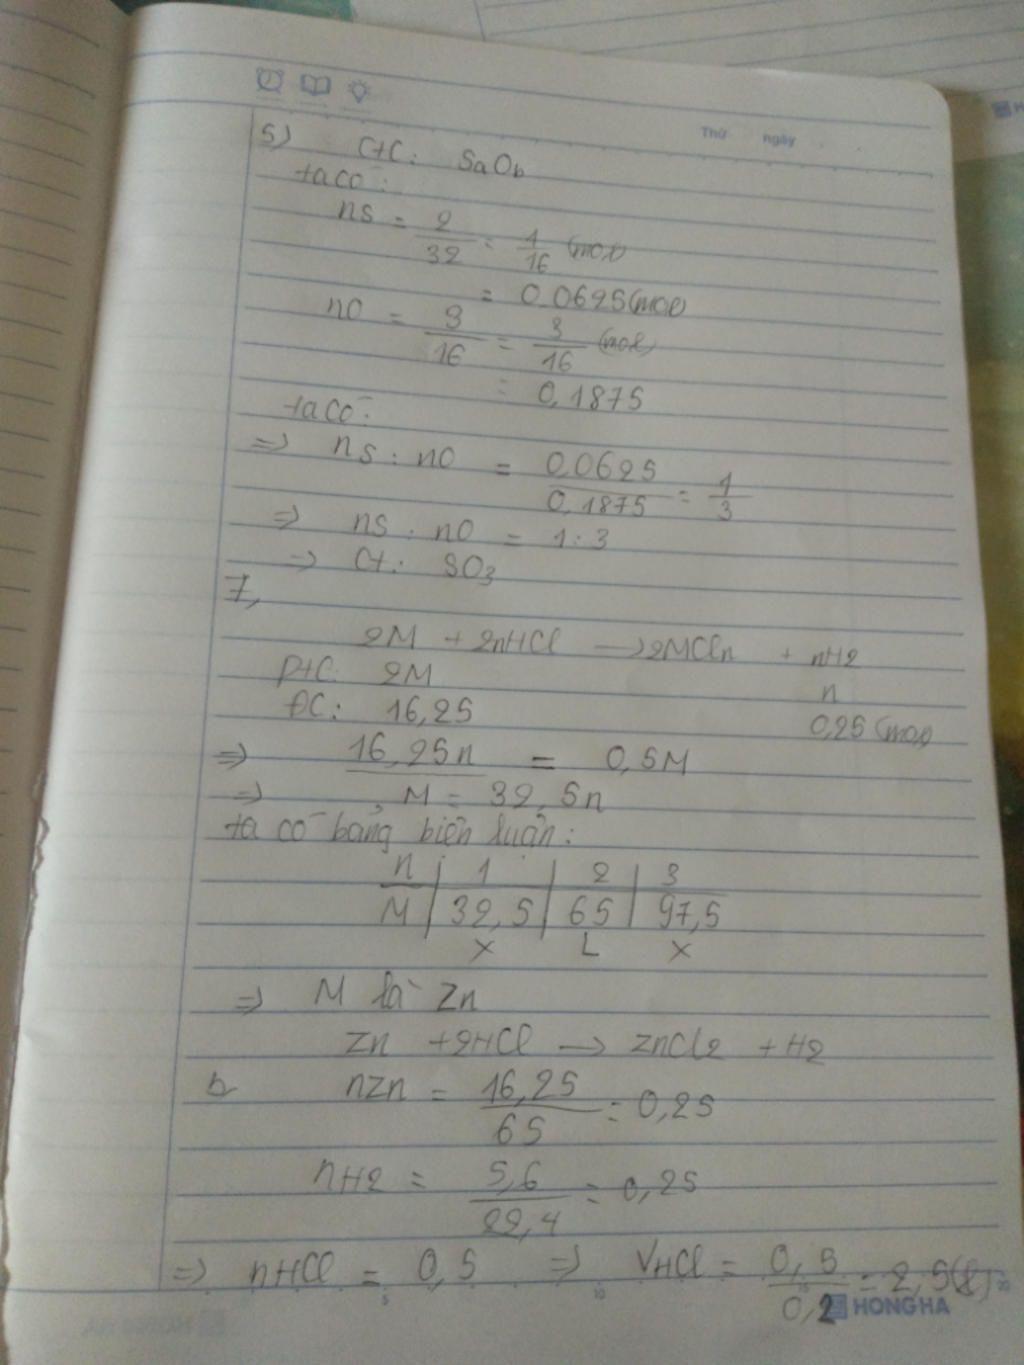 Thứ ngày
5) CTC: SaOb
ta có:
nS = 2/32 = 1/16 (mol)
= 0.0625 (mol)
nO = 3/16 = 3/16 (mol)
= 0,1875
ta có:
=> nS : nO = 0,0625/0,1875 = 1/3
=> nS : nO = 1:3
=> CT: SO3
7,
2M + 2nHCl → 2MCln + nH2
PTC: 2M n
ĐC: 16,25 0,25 (mol)
=> 16,25n = 0,5M
=> M = 32,5n
ta có bảng biện luận:
n | 1 | 2 | 3
M | 32,5 | 65 | 97,5
X L X
=> M là Zn
Zn + 2HCl → ZnCl2 + H2
b nZn = 16,25/65 = 0,25
nH2 = 5,6/22,4 = 0,25
=> nHCl = 0,5 => VHCl = 0,5/0,2 = 2,5(l)
5 10 15 20
HONG HA